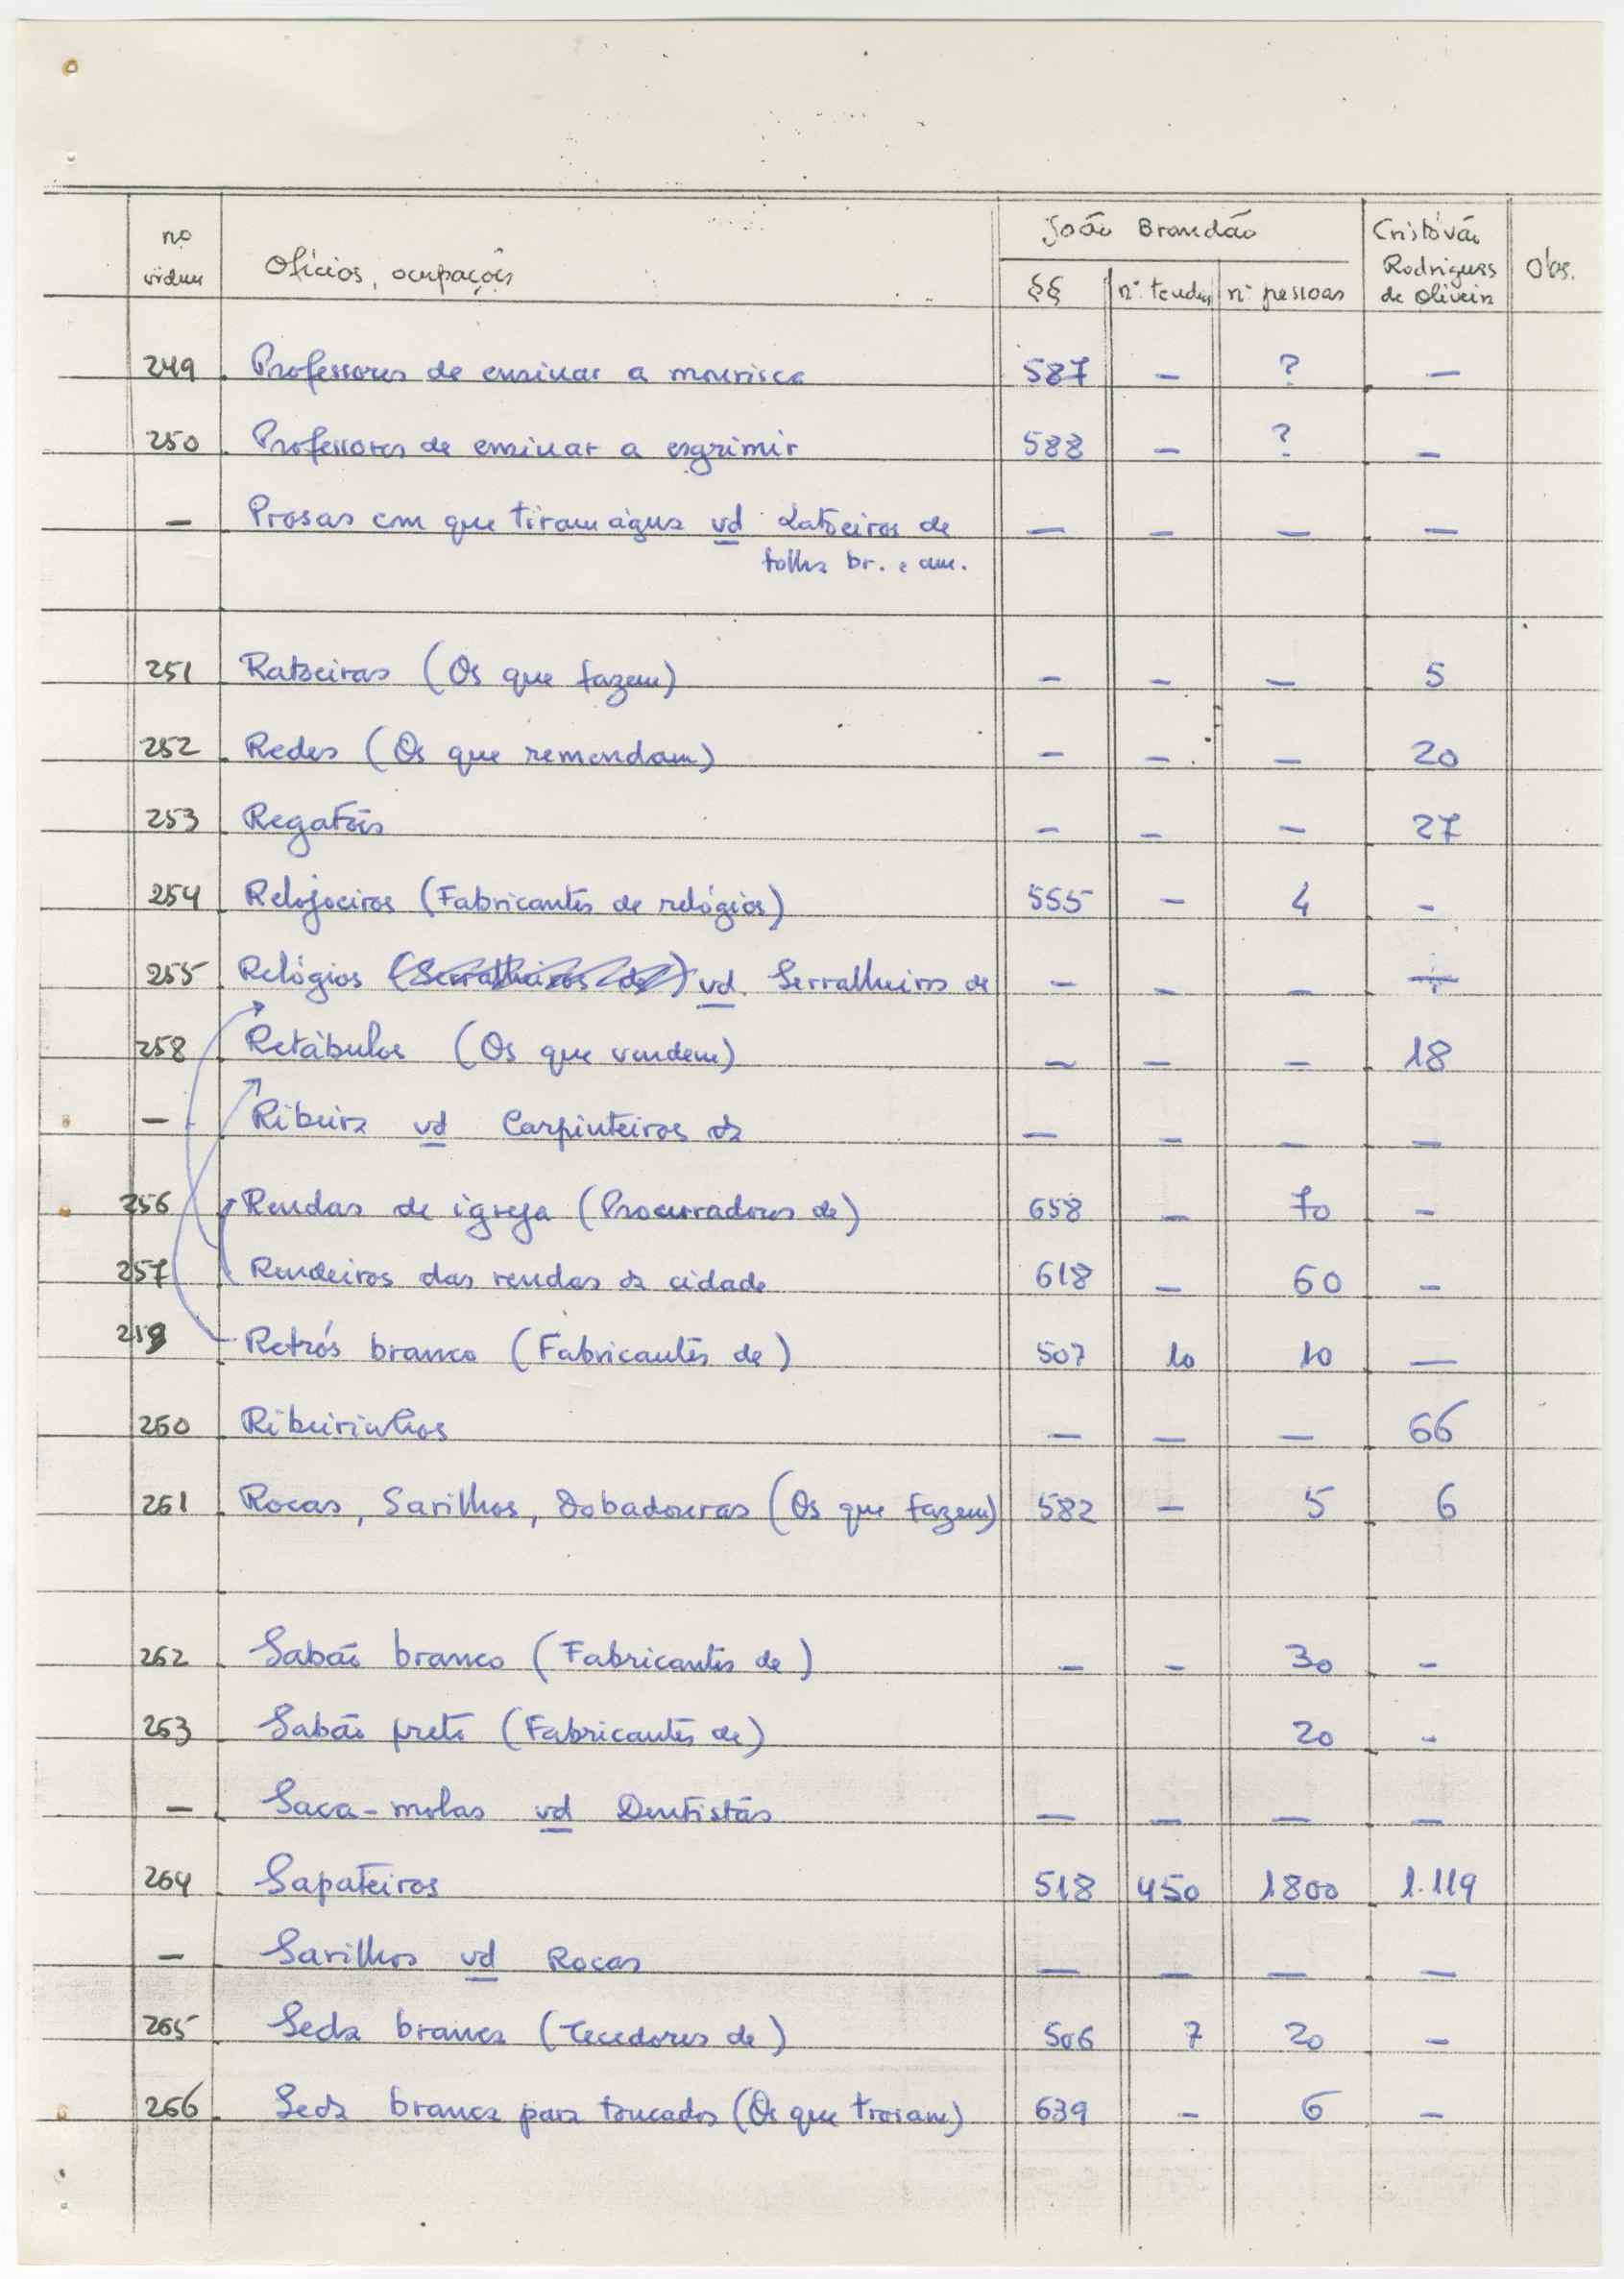 nº ordem | Ofícios, ocupações | João Brandão | Cristóvão Rodrigues de Oliveira | Obs.
§§ | nº tendas | nº pessoas
249 Professores de ensinar a mourisca 587 - ? -
250 Professores de ensinar a esgrimir 588 - ? -
- Prosas com que tiram água vd Latoeiros de - - - -
folha br. e am.
251 Ratoeiras (Os que fazem) - - - 5
252 Redes (Os que remendam) - - - 20
253 Regatões - - - 27
254 Relojoeiros (Fabricantes de relógios) 555 - 4 -
255 Relógios (Serralheiros de) vd Serralheiros de - - - -
258 Retábulos (Os que vendem) - - - 18
- Ribeira vd Carpinteiros da - - - -
256 Rendas de igreja (Procuradores de) 658 - 70 -
257 Rendeiros das rendas da cidade 618 - 60 -
259 Retrós branco (Fabricantes de) 507 10 10 -
260 Ribeirinhos - - - 66
261 Rocas, Sarilhos, Dobadouras (Os que fazem) 582 - 5 6
262 Sabão branco (Fabricantes de) - - 30 -
263 Sabão preto (Fabricantes de) 20 -
- Saca-molas vd Dentistas - - - -
264 Sapateiros 518 450 1800 1.119
- Sarilhos vd Rocas - - - -
265 Seda branca (Tecedores de) 506 7 20 -
266 Seda branca para toucados (Os que troiam) 639 - 6 -